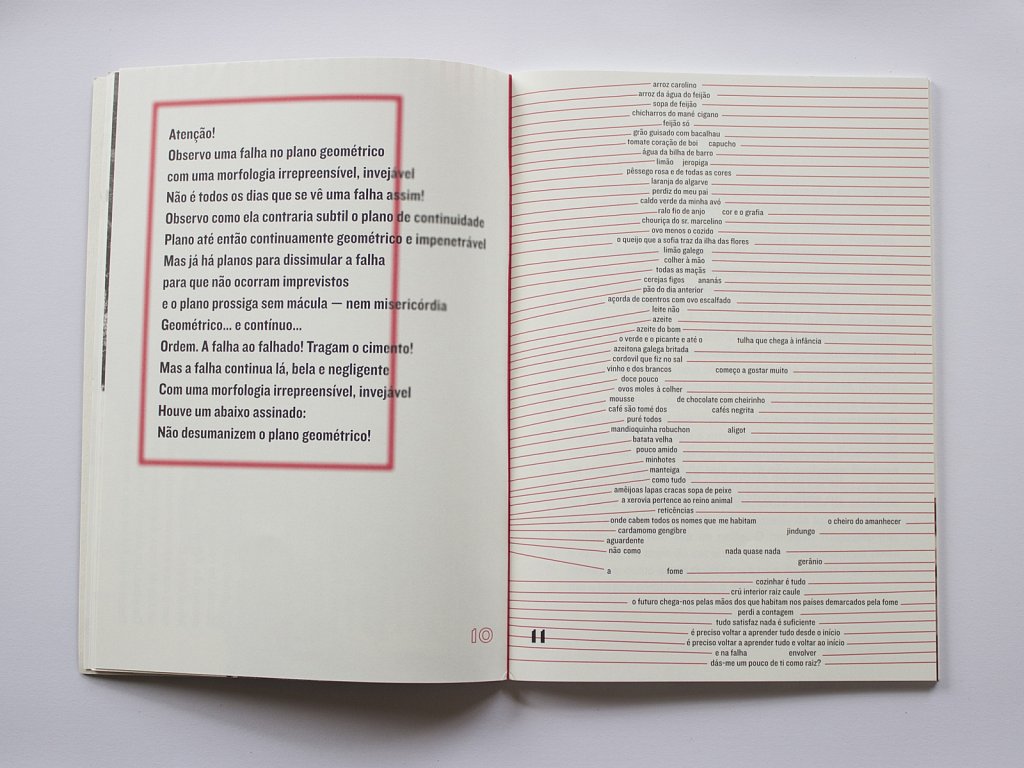 Atenção!
Observo uma falha no plano geométrico
com uma morfologia irrepreensível, invejável
Não é todos os dias que se vê uma falha assim!
Observo como ela contraria subtil o plano de continuidade
Plano até então continuamente geométrico e impenetrável
Mas já há planos para dissimular a falha
para que não ocorram imprevistos
e o plano prossiga sem mácula — nem misericórdia
Geométrico... e contínuo...
Ordem. A falha ao falhado! Tragam o cimento!
Mas a falha continua lá, bela e negligente
Com uma morfologia irrepreensível, invejável
Houve um abaixo assinado:
Não desumanizem o plano geométrico!
10
arroz carolino
arroz da água do feijão
sopa de feijão
chicharros do mané cigano
feijão só
grão guisado com bacalhau
tomate coração de boi capucho
água da bilha de barro
limão jeropiga
pêssego rosa e de todas as cores
laranja do algarve
perdiz do meu pai
caldo verde da minha avó
ralo fio de anjo cor e o grafia
chouriça do sr. marcelino
ovo menos o cozido
o queijo que a sofia traz da ilha das flores
limão galego
colher à mão
todas as maçãs
cerejas figos ananás
pão do dia anterior
açorda de coentros com ovo escalfado
leite não
azeite
azeite do bom
o verde e o picante e até o tulha que chega à infância
azeitona galega britada
cordovil que fiz no sal
vinho e dos brancos começo a gostar muito
doce pouco
ovos moles à colher
mousse de chocolate com cheirinho
café são tomé dos cafés negrita
puré todos
mandioquinha robuchon aligot
batata velha
pouco amido
minhotes
manteiga
como tudo
amêijoas lapas cracas sopa de peixe
a xerovia pertence ao reino animal
reticências
onde cabem todos os nomes que me habitam o cheiro do amanhecer
cardamomo gengibre jindungo
aguardente
não como nada quase nada
gerânio
a fome
cozinhar é tudo
crú interior raiz caule
o futuro chega-nos pelas mãos dos que habitam nos países demarcados pela fome
perdi a contagem
tudo satisfaz nada é suficiente
é preciso voltar a aprender tudo desde o início
é preciso voltar a aprender tudo e voltar ao início
e na falha envolver
dás-me um pouco de ti como raiz?
11